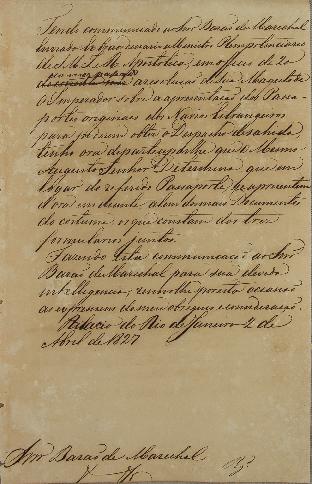 Tendo communicado ao Snr Barão de Mareschal
Enviado Extraordinario e Ministro Plenipotenciario
de S. M. I. e R. Apostolica, em officio de 20
do mez passado a resolução de Sua Magestade
O Imperador sobre a apresentação dos Passa-
portes originaes dos Navios Estrangeiros
para poderem obter o Despacho de sahida,
tenho ora de participar-lhe que O Mesmo
Augusto Senhor Determina que em
logar do referido Passaporte, se apresentem
d'ora em deante alem dos mais Documentos
do costume o que constam dos tres
formularios juntos.
Fazendo esta communicação ao Snr
Barão de Mareschal para sua devida
intelligencia, renovo-lhe por esta occasião
as expressoens de meu obsequio e consideração.
Palacio do Rio de Janeiro 2 de
Abril de 1827
Snr Barão de Mareschal